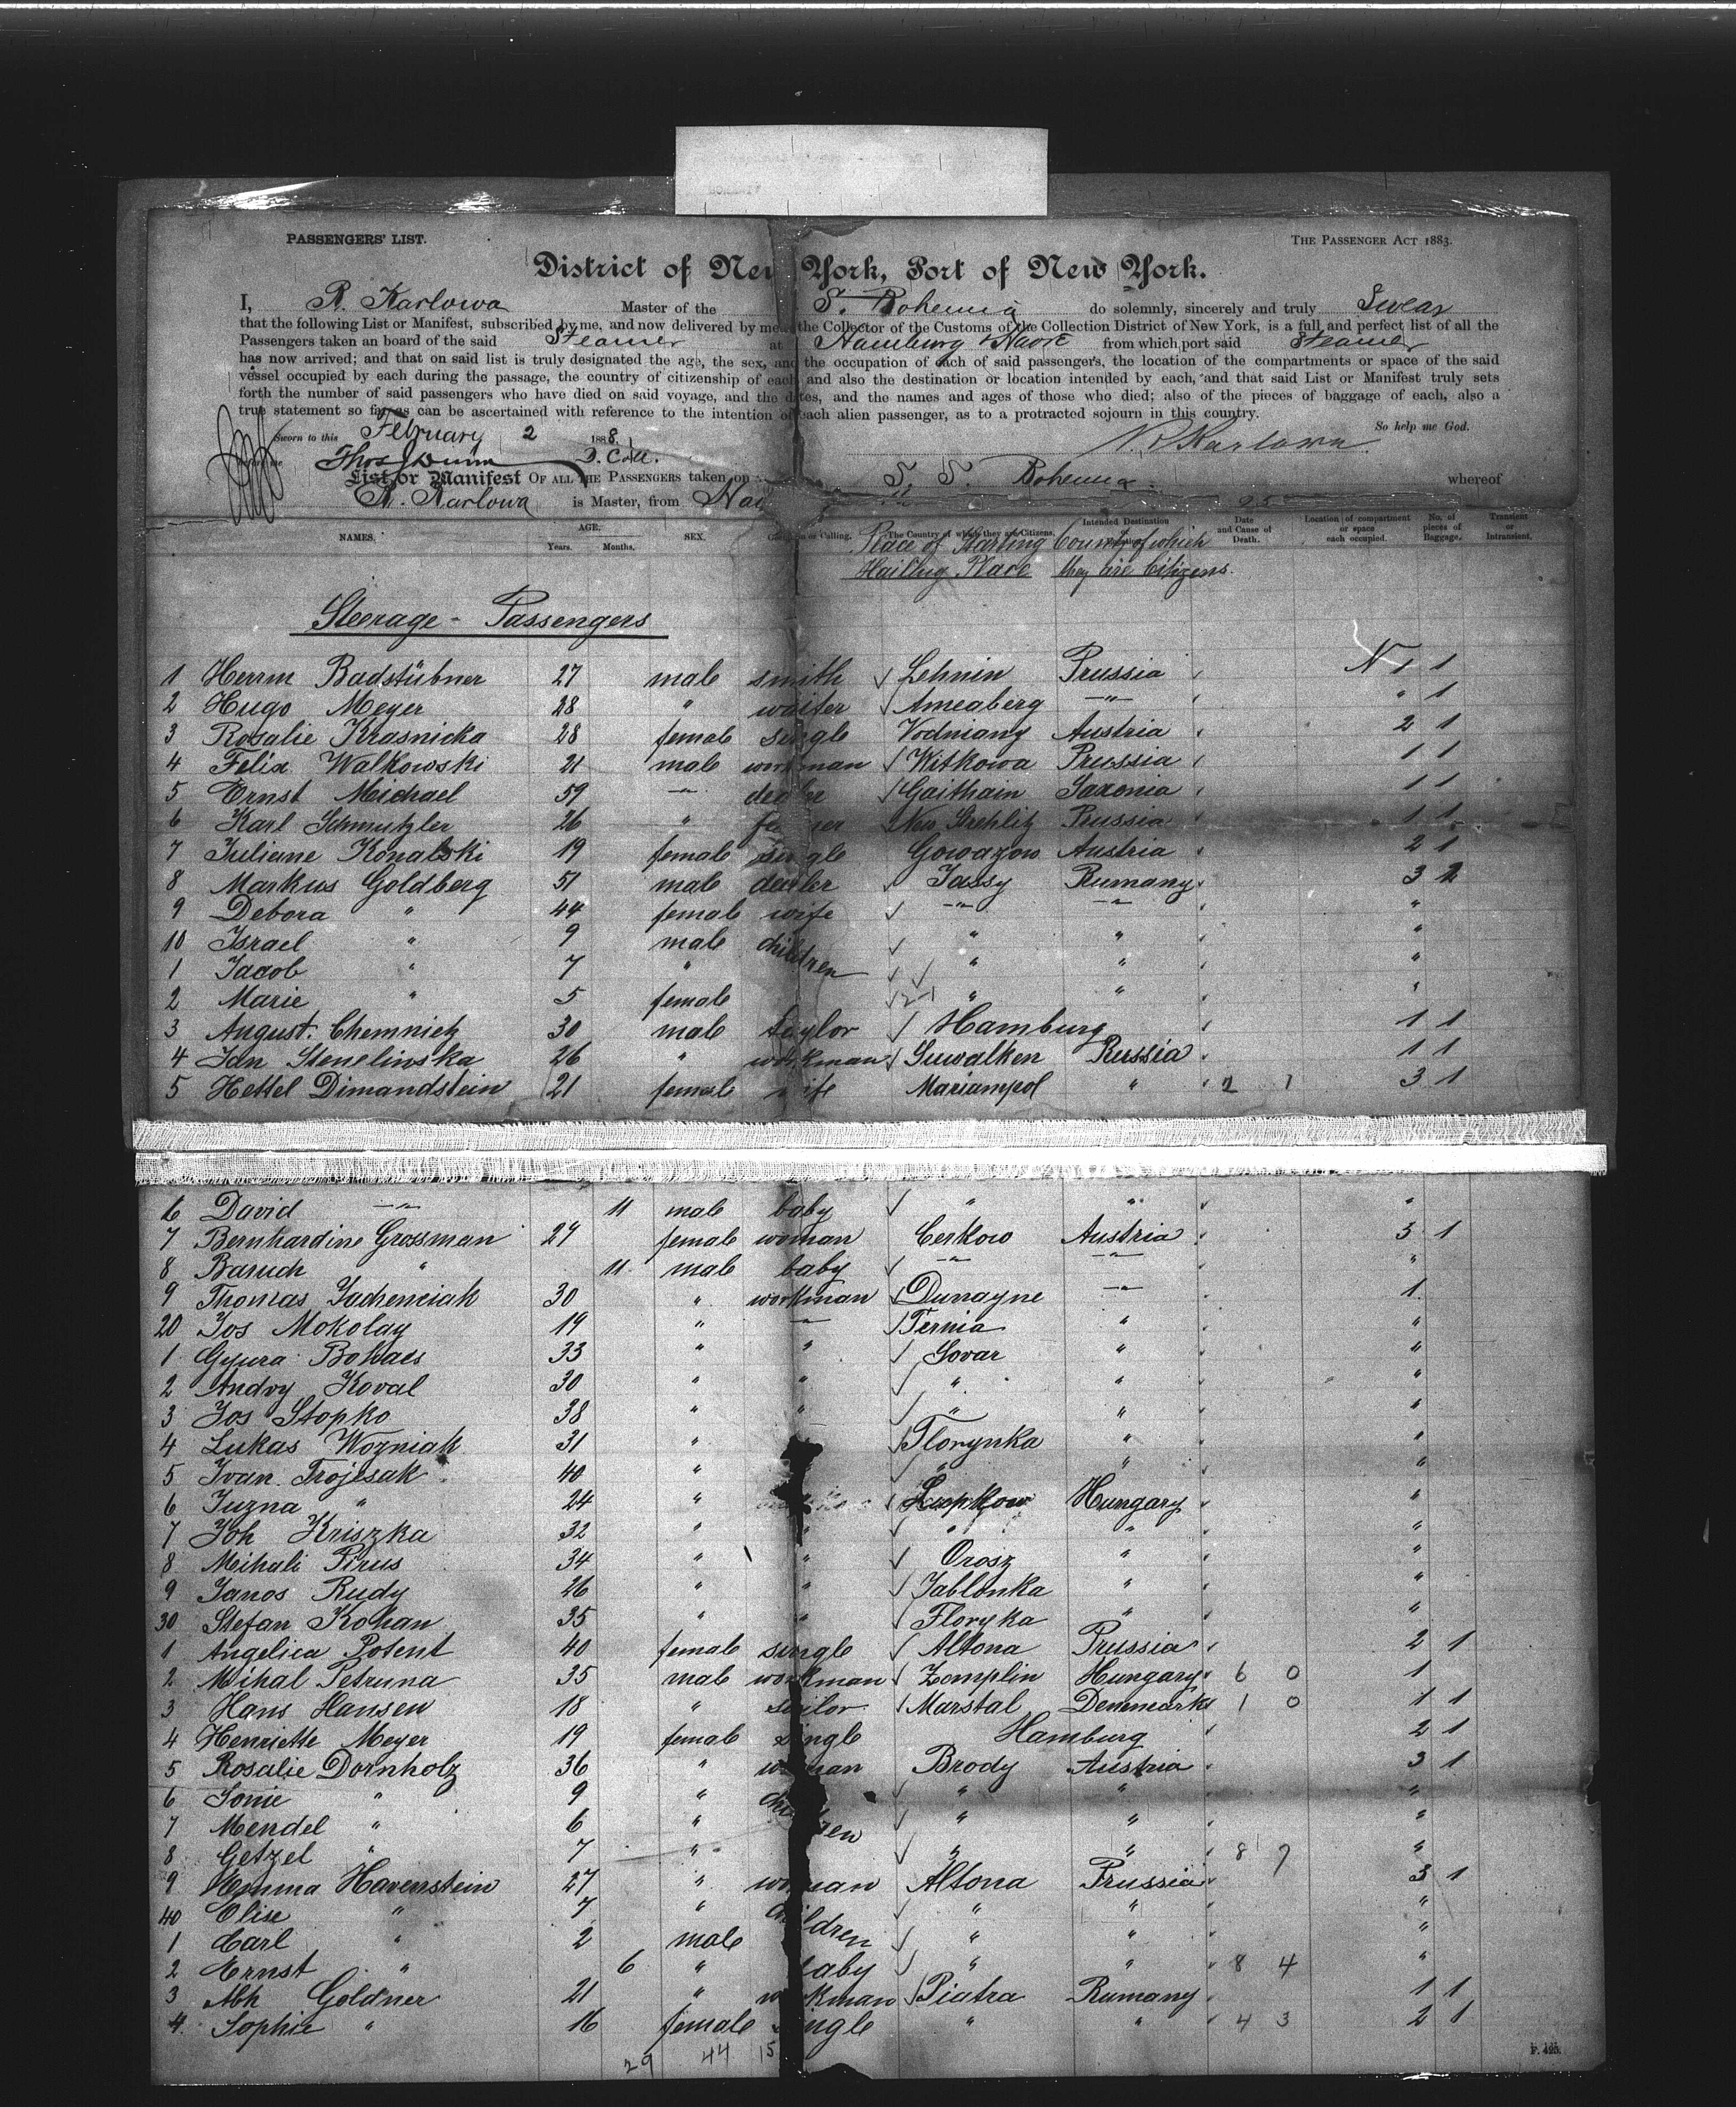 PASSENGERS' LIST.
THE PASSENGER ACT 1883.
District of New York, Port of New York.
I, R. Karlowa Master of the S. Bohemia do solemnly, sincerely and truly Swear
that the following List or Manifest, subscribed by me, and now delivered by me the Collector of the Customs of the Collection District of New York, is a full and perfect list of all the
Passengers taken on board of the said Steamer at Hamburg & Havre from which port said Steamer
has now arrived; and that on said list is truly designated the age, the sex, and the occupation of each of said passengers, the location of the compartments or space of the said
vessel occupied by each during the passage, the country of citizenship of each and also the destination or location intended by each, and that said List or Manifest truly sets
forth the number of said passengers who have died on said voyage, and the dates, and the names and ages of those who died; also of the pieces of baggage of each, also a
true statement so far as can be ascertained with reference to the intention of each alien passenger, as to a protracted sojourn in this country.
Sworn to this February 2 1888. So help me God.
before me Thos J Dunn D. Coll. R. Karlowa
List or Manifest OF ALL THE PASSENGERS taken on S. S. Bohemia whereof
R. Karlowa is Master, from
NAMES. AGE. Years. Months. SEX. Occupation or Calling. The Country of which they are Citizens. Intended Destination Date and Cause of Death. Location of compartment or space each occupied. No. of pieces of Baggage. Transient or Intransient.
Place of Starting Country of which
Hailing Place they are Citizens.
Steerage - Passengers
1 Herrm Badstübner 27 male smith Lehnin Prussia N 1 1
2 Hugo Meyer 28 " waiter Ameaberg " " 1
3 Rosalie Krasnicka 28 female single Vodniany Austria 2 1
4 Felix Walkowski 21 male workman Witkowa Prussia 1 1
5 Ernst Michael 59 " Gaitham Saxonia 1 1
6 Karl Schmutzler 26 " Neu Strehlitz Prussia 1 1
7 Juliane Konalski 19 female single Gowazow Austria 2 1
8 Markus Goldberg 51 male dealer Jassy Rumany 3 2
9 Debora " 44 female wife " " "
10 Israel " 9 male children " " "
1 Jacob " 7 " " " "
2 Marie " 5 female 2-1 " " "
3 August Chemnitz 30 male taylor Hamburg 1 1
4 Jan Stenelinska 26 " workman Suwalken Russia 1 1
5 Hettel Dimandstein 21 female wife Mariampol " 2 1 3 1
6 David " 11 male baby " " "
7 Bernhardine Grossman 24 female woman Cerkow Austria 3 1
8 Baruch " 11 male baby " " "
9 Thomas Jachenciak 30 " workman Dunayne " 1
20 Jos Mokolay 19 " " Ternia " "
1 Gyura Bohacs 33 " " Sovar " "
2 Andry Koval 30 " " " " "
3 Jos Stopko 38 " " " " "
4 Lukas Wozniak 31 " Florynka " "
5 Ivan Trojcsak 40 " " " " "
6 Juzna " 24 " Lupkow Hungary "
7 Joh Kriszka 32 " " " " "
8 Mihali Pirus 34 " " Orosz " "
9 Janos Rudy 26 " " Jablonka " "
30 Stefan Kohan 35 " " Floryka " "
1 Angelica Potent 40 female single Altona Prussia 2 1
2 Mihal Petruna 35 male workman Zemplin Hungary 6 0 1
3 Hans Hansen 18 " sailor Marstal Denmark 1 0 1 1
4 Henriette Meyer 19 female single Hamburg 2 1
5 Rosalie Dornholz 36 " woman Brody Austria 3 1
6 Sonie " 9 " children " " "
7 Mendel " 6 " " " "
8 Getzel " 7 " " " 8 7 "
9 Emma Havenstein 27 " woman Altona Prussia 3 1
40 Elise " 7 " children " " "
1 Carl " 2 male " " "
2 Ernst " 6 " baby " " 8 4 "
3 Abh Goldner 21 " workman Piatra Rumany 1 1
4 Sophie " 16 female single " " 4 3 2 1
29 44 15